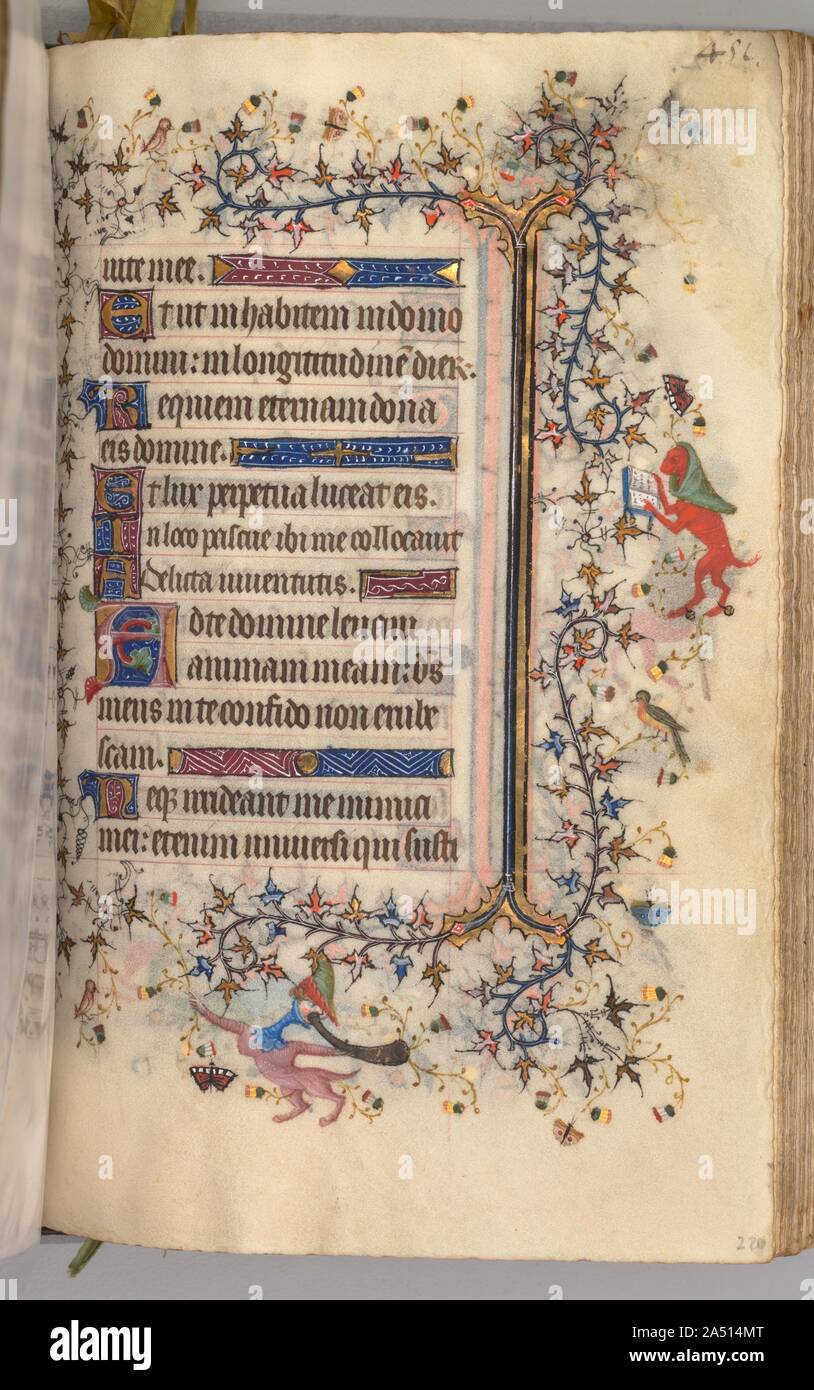 456.
iute mee.
Et ut inhabitem in domo
domini: in longititudinē dier.
Requiem eternam dona
eis domine.
Et lux perpetua luceat eis.
In loco pascue ibi me collocavit
Delicta iuventutis.
Ad te domine levavi
animam meam: ds̄
meus in te confido non erube
scam.
Neq irrideant me inimici
mei: etenim universi qui susti
220
alamy
alamy
Image ID: 2A514MT
www.alamy.com